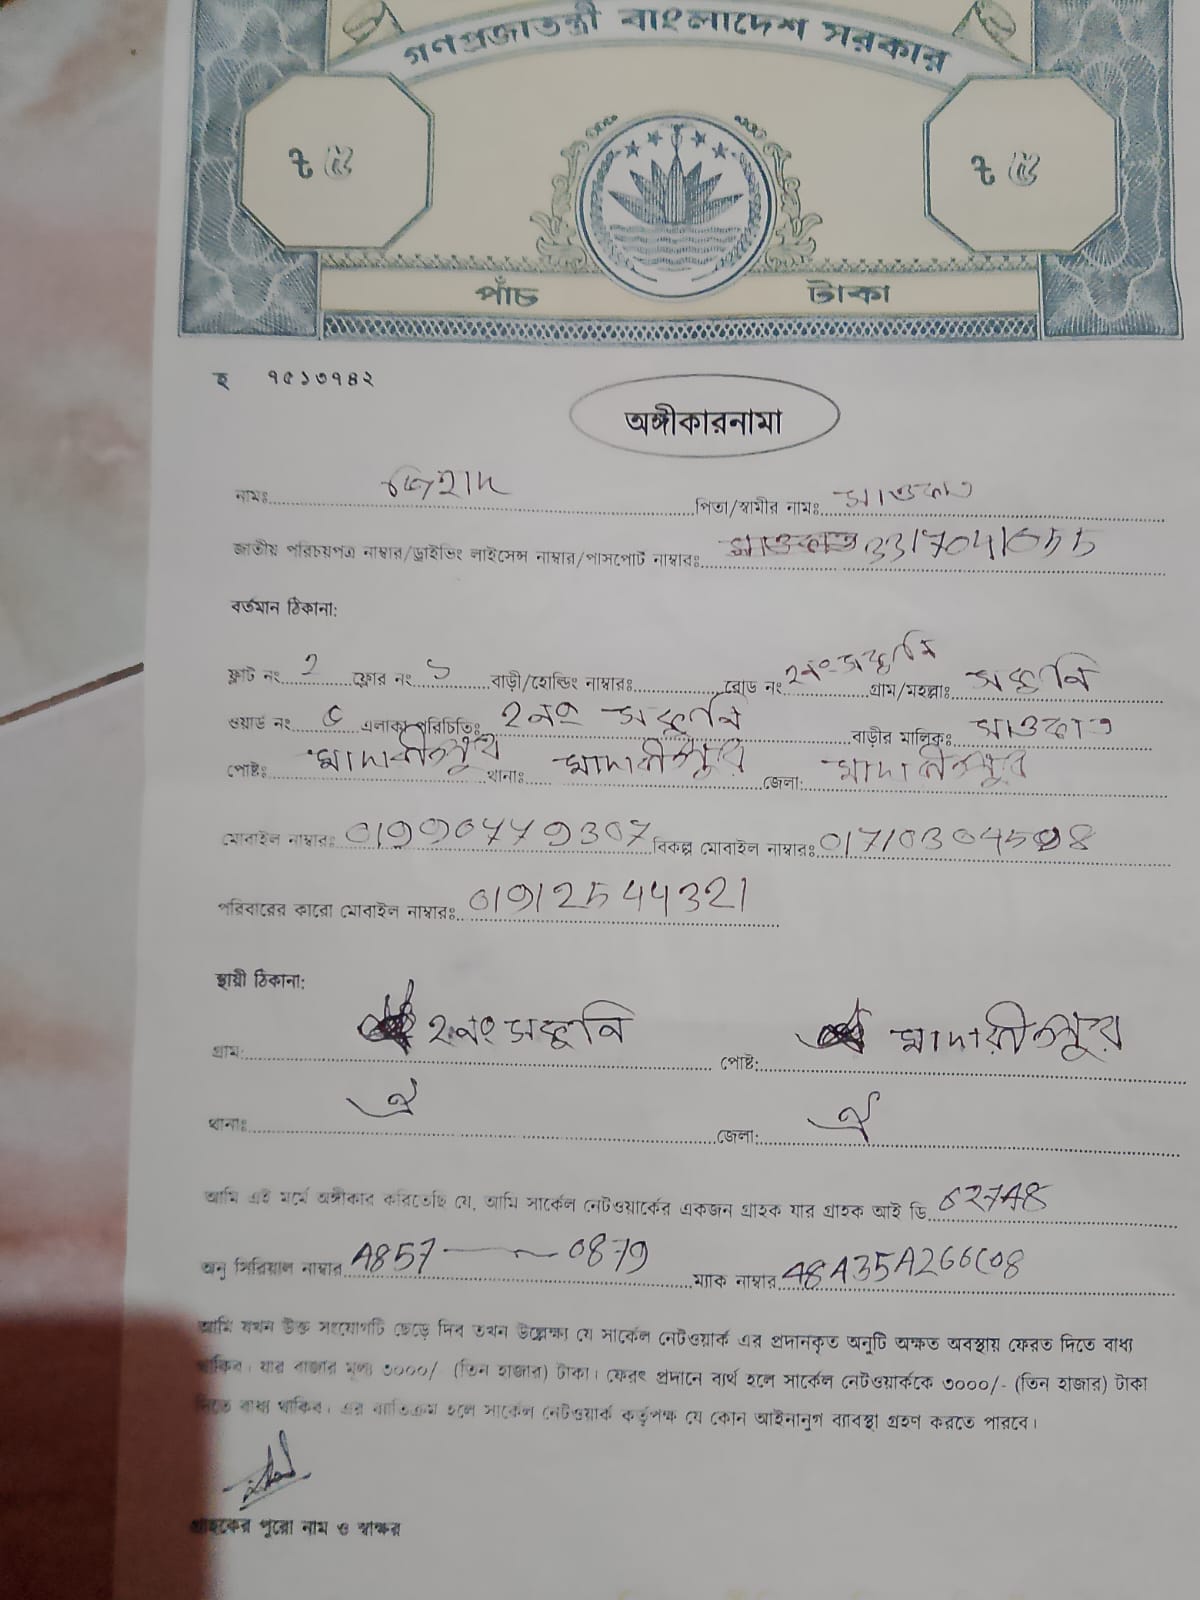 গণপ্রজাতন্ত্রী বাংলাদেশ সরকার
৳ ৫ ৳ ৫
পাঁচ টাকা
হ ৭৫১৩৭৪২
অঙ্গীকারনামা
নামঃ জিহাদ পিতা/স্বামীর নামঃ সাওকাত
জাতীয় পরিচয়পত্র নাম্বার/ড্রাইভিং লাইসেন্স নাম্বার/পাসপোর্ট নাম্বারঃ 3317041655
বর্তমান ঠিকানা:
ফ্লাট নং 2 ফ্লোর নং ১ বাড়ী/হোল্ডিং নাম্বারঃ রোড নং ২নং শকুনি গ্রাম/মহল্লাঃ শকুনি
ওয়ার্ড নং ৫ এলাকা পরিচিতিঃ ২নং শকুনি বাড়ীর মালিকঃ সাওকাত
পোষ্টঃ মাদারীপুর থানাঃ মাদারীপুর জেলা: মাদারীপুর
মোবাইল নাম্বারঃ 01990779307 বিকল্প মোবাইল নাম্বারঃ
পরিবারের কারো মোবাইল নাম্বারঃ 01912544321
স্থায়ী ঠিকানা:
গ্রাম: ২নং শকুনি পোষ্ট: মাদারীপুর
থানাঃ ঐ জেলা: ঐ
আমি এই মর্মে অঙ্গীকার করিতেছি যে, আমি সার্কেল নেটওয়ার্কের একজন গ্রাহক যার গ্রাহক আই ডি 62748
অনু সিরিয়াল নাম্বার A857 — 0879 ম্যাক নাম্বার 48A35A266C08
আমি যখন উক্ত সংযোগটি ছেড়ে দিব তখন উল্লেক্ষ্য যে সার্কেল নেটওয়ার্ক এর প্রদানকৃত অনুটি অক্ষত অবস্থায় ফেরত দিতে বাধ্য
থাকিব। যার বাজার মূল্য ৩০০০/- (তিন হাজার) টাকা। ফেরৎ প্রদানে ব্যর্থ হলে সার্কেল নেটওয়ার্ককে ৩০০০/- (তিন হাজার) টাকা
দিতে বাধ্য থাকিব। এর ব্যতিক্রম হলে সার্কেল নেটওয়ার্ক কর্তৃপক্ষ যে কোন আইনানুগ ব্যাবস্থা গ্রহণ করতে পারবে।
গ্রাহকের পুরো নাম ও স্বাক্ষর